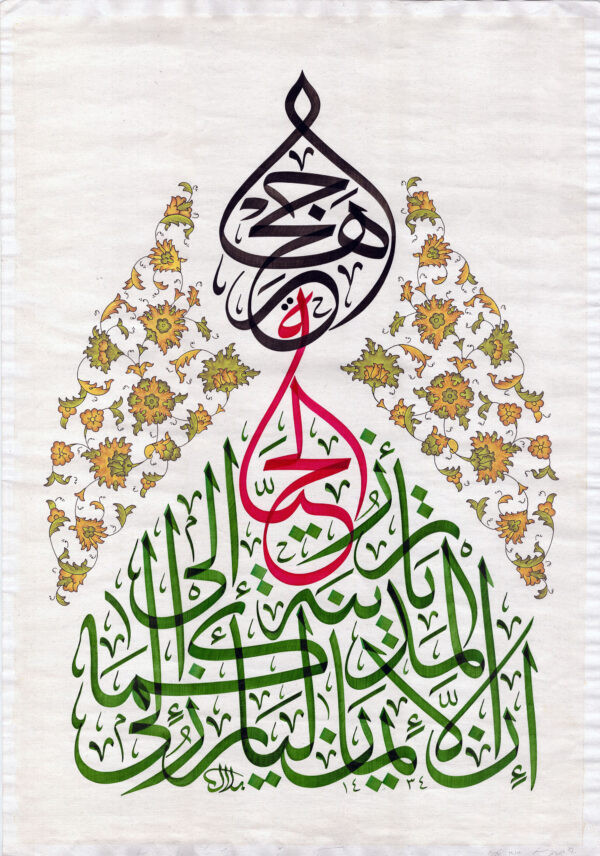 إن الإيمان ليأرز إلى
المدينة كما
تأرز الحية إلى
جحرها
١٤٣٤